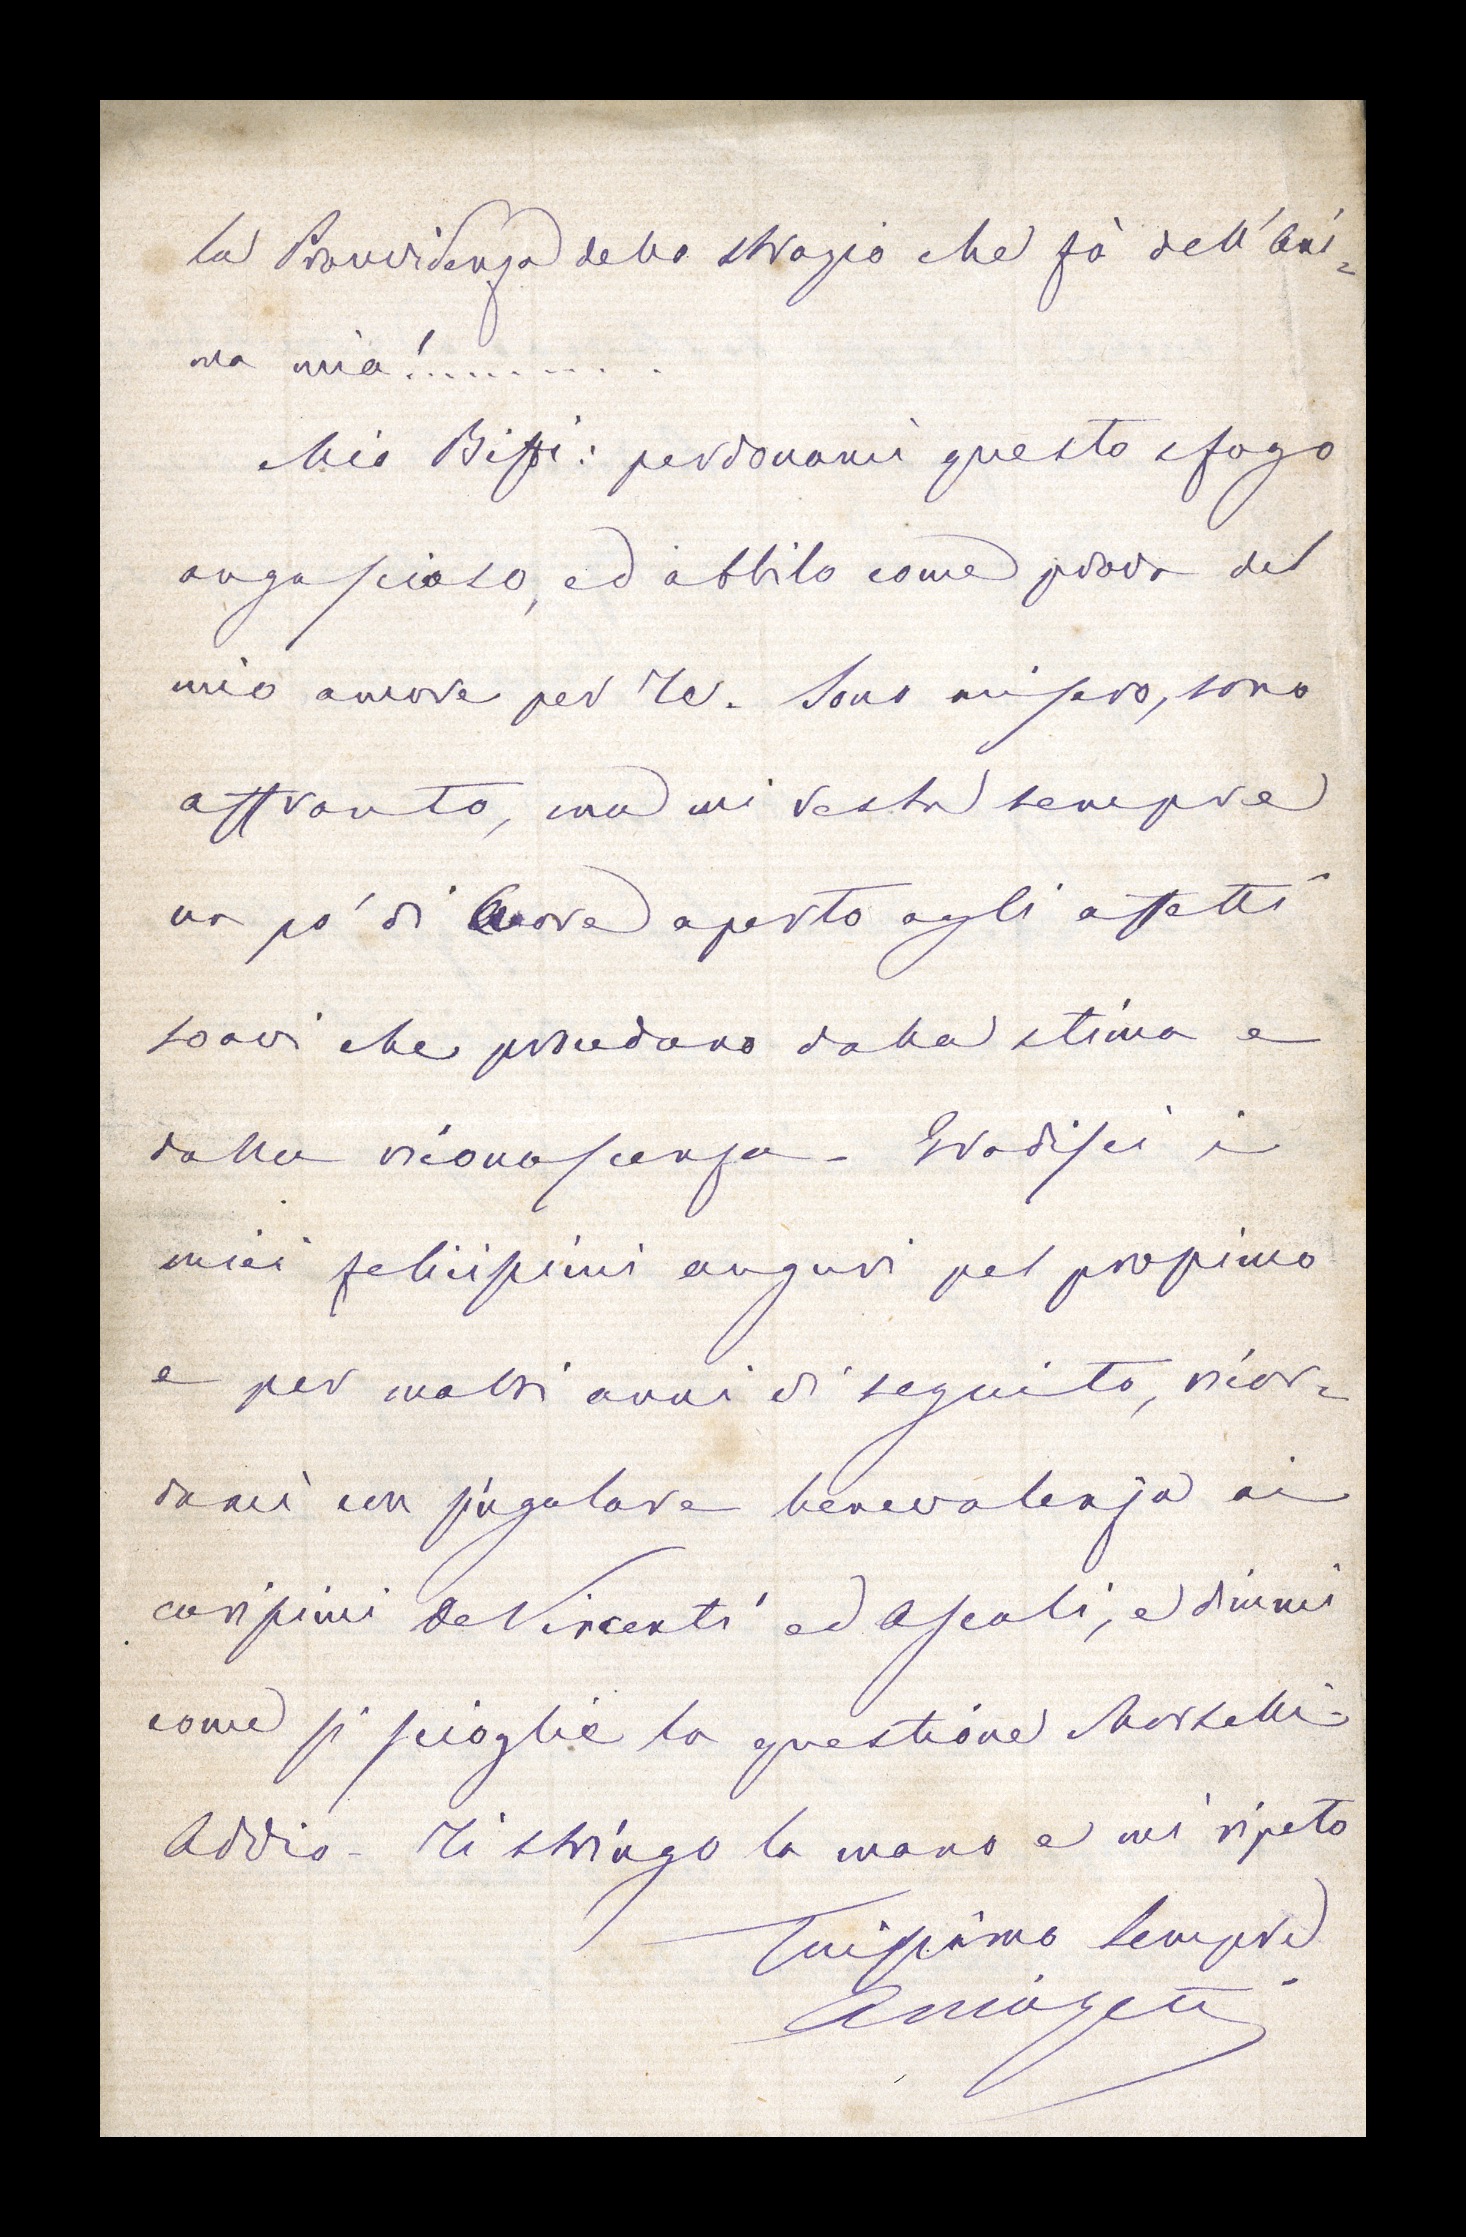 la Provvidenza dello strazio che fà dell'ani=
ma mia!..........
Mio Biffi: perdonami questo sfogo
angascioso, ed abbilo come prova del
mio amore per Te. Sono misero, sono
affranto, ma mi resta sempre
un pò di Cuore aperto agli affetti
soavi che procedano dalla stima e
dalla riconoscenza - Gradisci i
miei felicissimi auguri pel prossimo
e per molti anni di seguito, ricor=
dami con singolare benevolenza ai
carissimi De Vincenti ed Ascoli, e dimmi
come si scioglie la questione Morselli-
Addio - Ti stringo la mano e mi ripeto
Tuissimo sempre